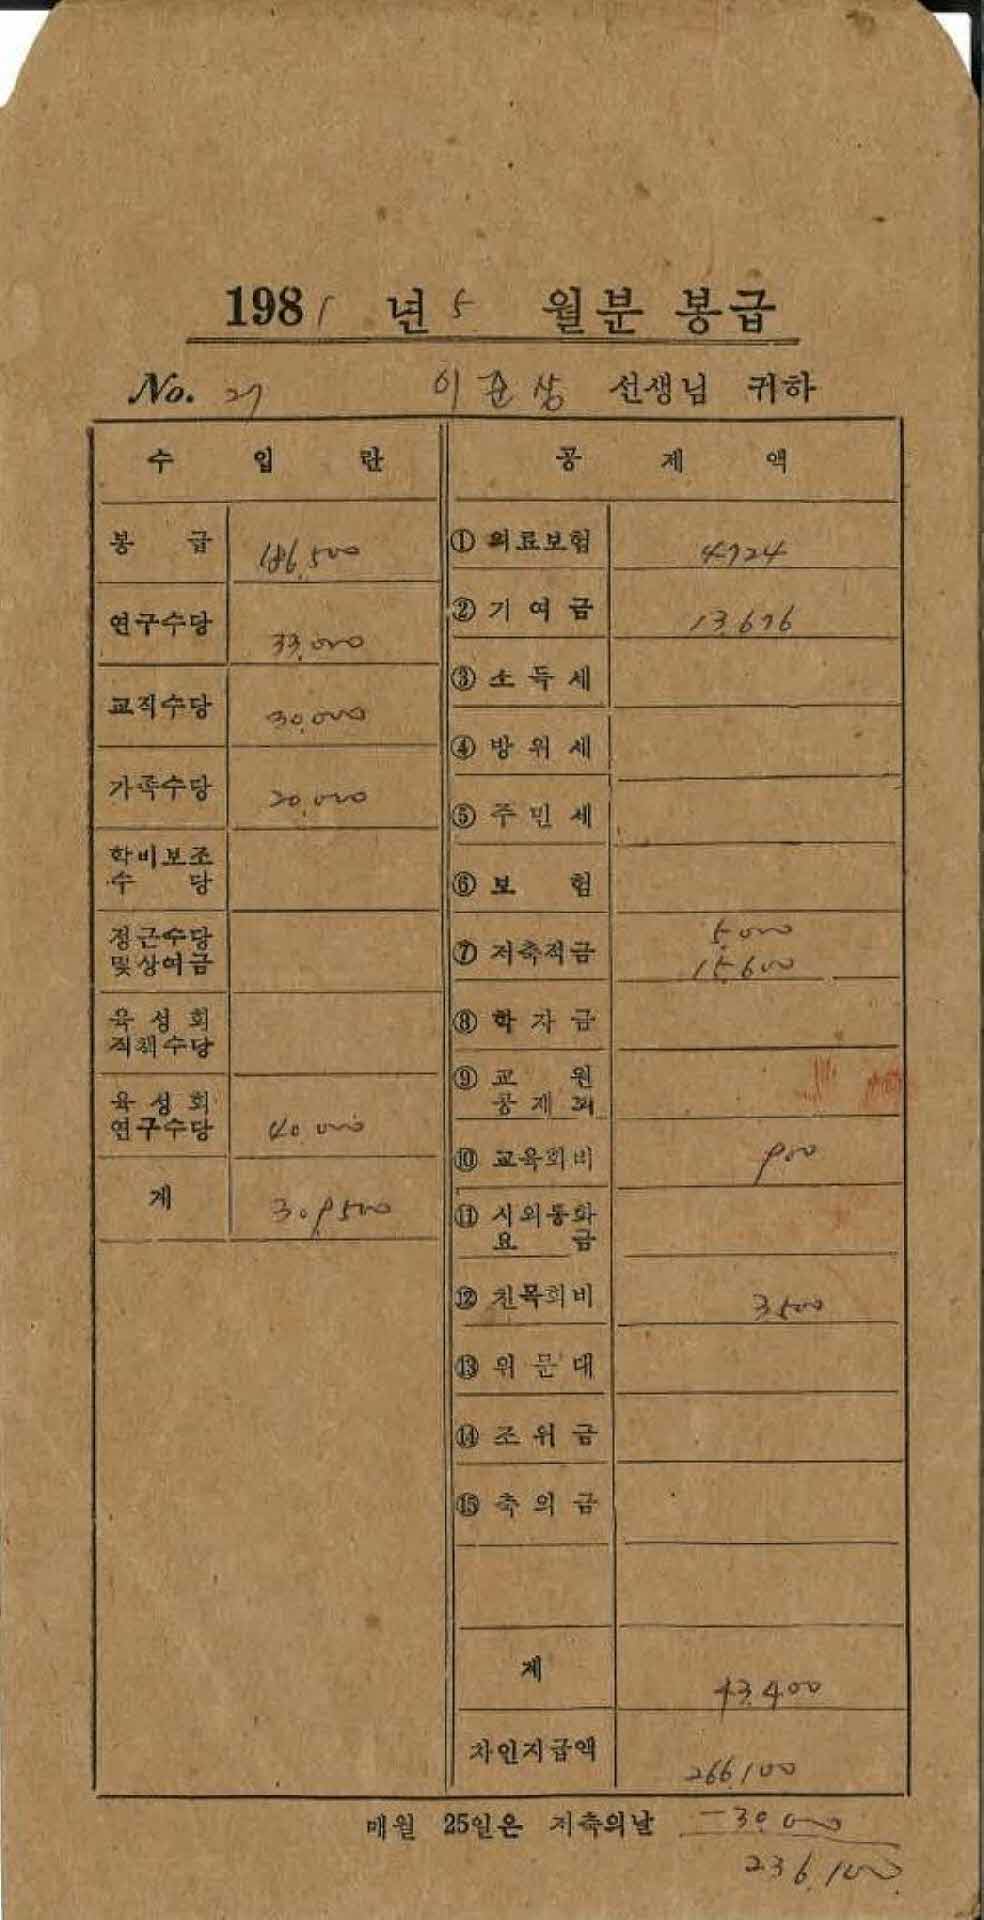 1981 년 5 월분 봉급
No. 27 이 준 상 선생님 귀하
수 입 란
봉 급 186,500
연구수당 33,000
교직수당 30,000
가족수당 20,000
학비보조
수 당
정근수당
및상여금
육 성 회
직책수당
육 성 회
연구수당 40,000
계 309,500
공 제 액
① 의료보험 4724
② 기 여 금 13,676
③ 소 득 세
④ 방 위 세
⑤ 주 민 세
⑥ 보 험
⑦ 저축적금 5,000
15,600
⑧ 학 자 금
⑨ 교 원
공 제 회
⑩ 교육회비 900
⑪ 시외통화
요 금
⑫ 친목회비 3500
⑬ 위 문 대
⑭ 조 위 금
⑮ 축 의 금
계 43,400
차인지급액 266,100
매월 25일은 저축의날 -30,000
236,100